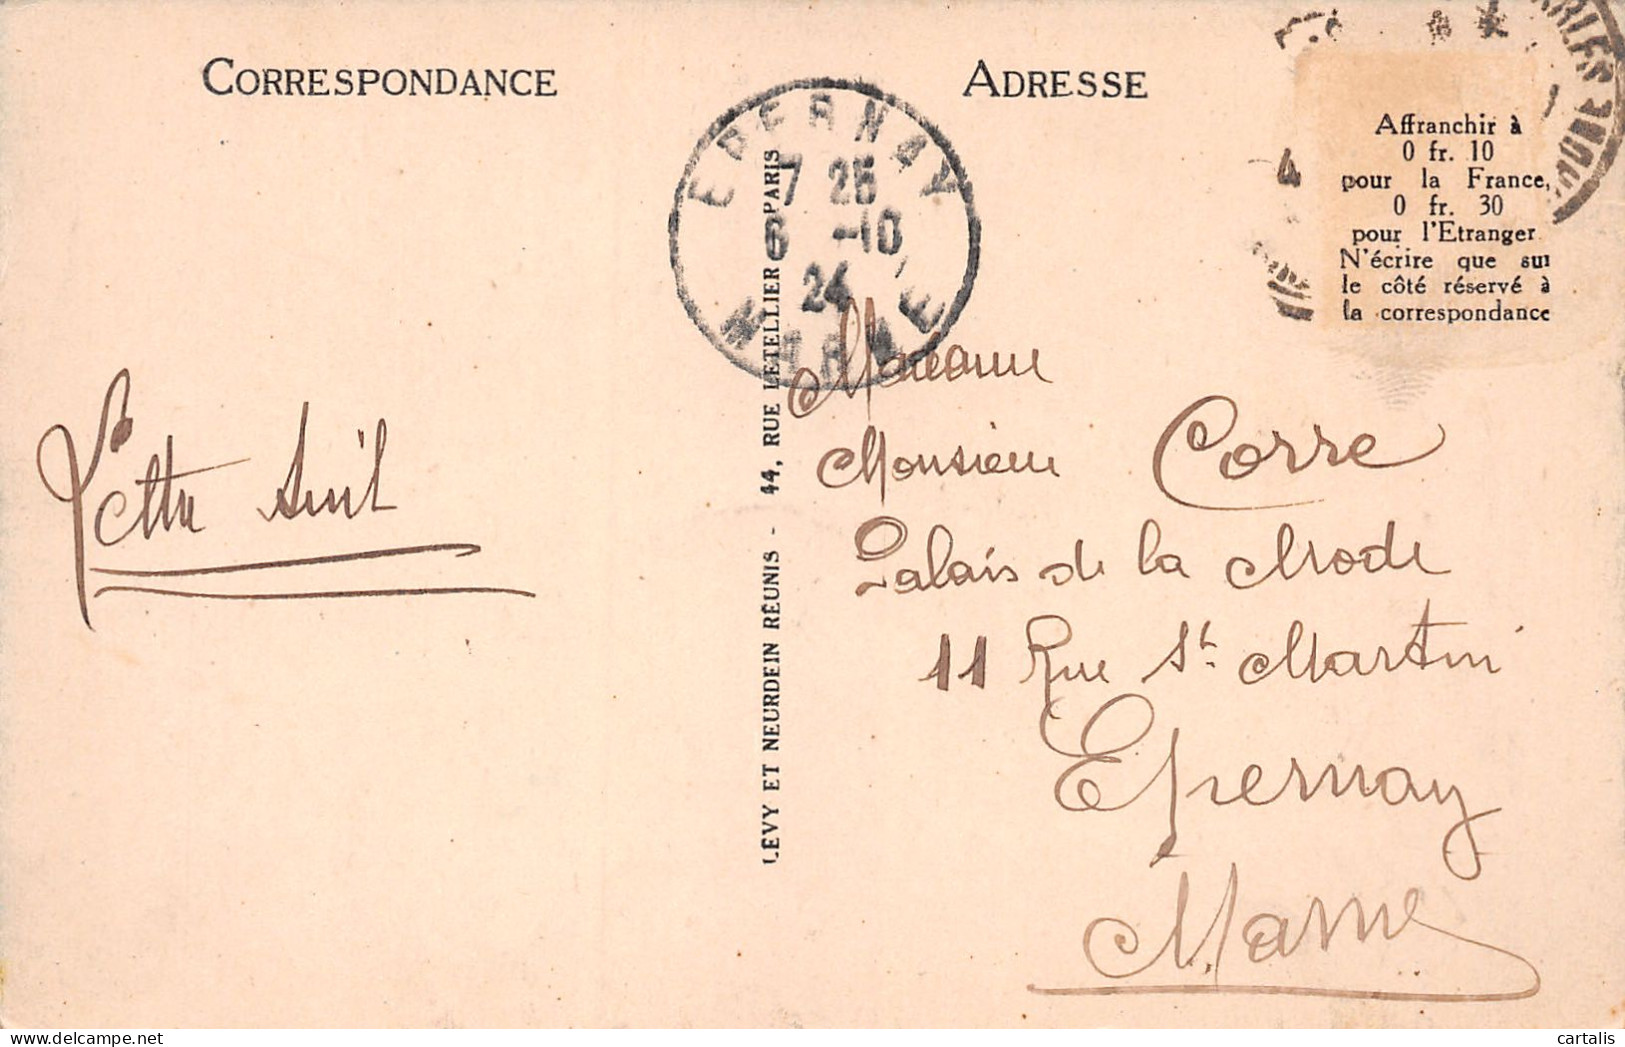 CORRESPONDANCE
ADRESSE
EPERNAY
7 25
6 -10
24
MARNE
4
Affranchir à
0 fr. 10
pour la France,
0 fr. 30
pour l'Etranger
N'écrire que sur
le côté réservé à
la correspondance
LÉVY ET NEURDEIN RÉUNIS - 44, RUE LETELLIER, PARIS
Lettre suit
Madame
Monsieur Corre
Palais de la Mode
11 Rue St. Martin
Epernay
Marne
cartalis